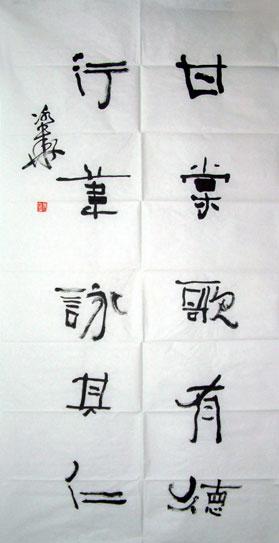 甘棠歌有德
行葦詠其仁